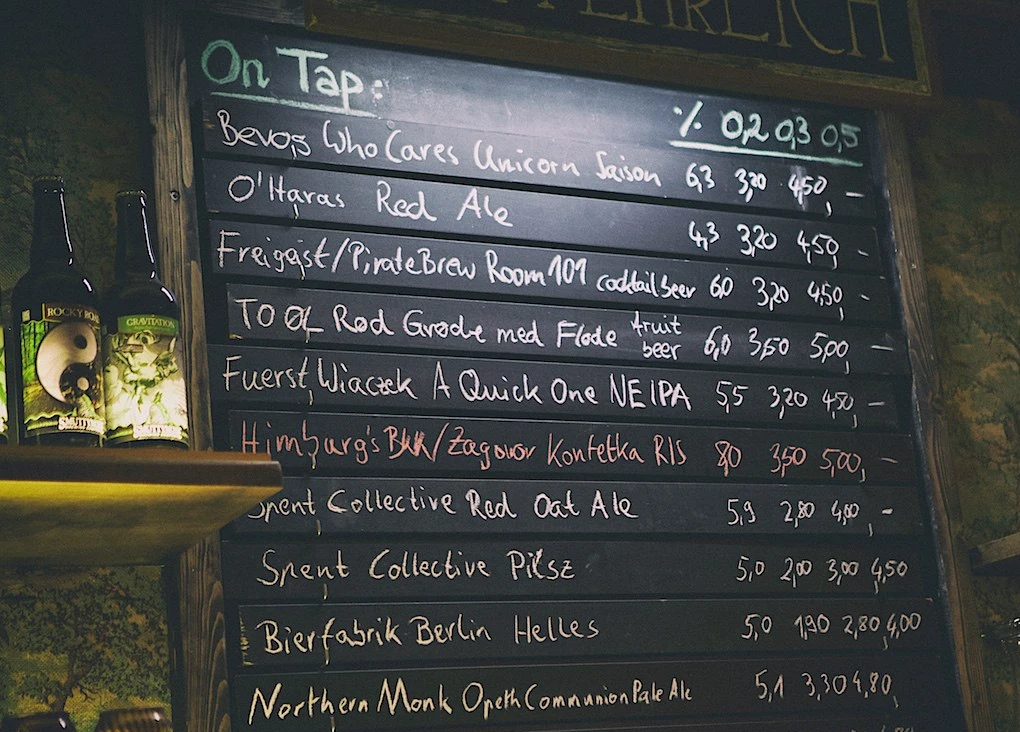 EHRLICH
On Tap: % 0,2 0,3 0,5
Bevog Who Cares Unicorn Saison 6,3 3,20 4,50, -
O'Haras Red Ale 4,3 3,20 4,50, -
Freigeist/PirateBrew Room 101 cocktail beer 6,0 3,20 4,50, -
TO ØL Rød Grøde med Fløde fruit beer 6,0 3,50 5,00, -
Fuerst Wiaczek A Quick One NEIPA 5,5 3,20 4,50, -
Himburg's BKK/Zagovor Kontetka RIS 8,0 3,50 5,00, -
Spent Collective Red Oat Ale 5,9 2,80 4,00, -
Spent Collective Pilsz 5,0 2,00 3,00 4,50
Bierfabrik Berlin Helles 5,0 1,90 2,80 4,00
Northern Monk Opeth Communion Pale Ale 5,1 3,30 4,80,
ROCKY ROAD
SMUTTYNOSE
GRAVITATION
SMUTTYNOSE